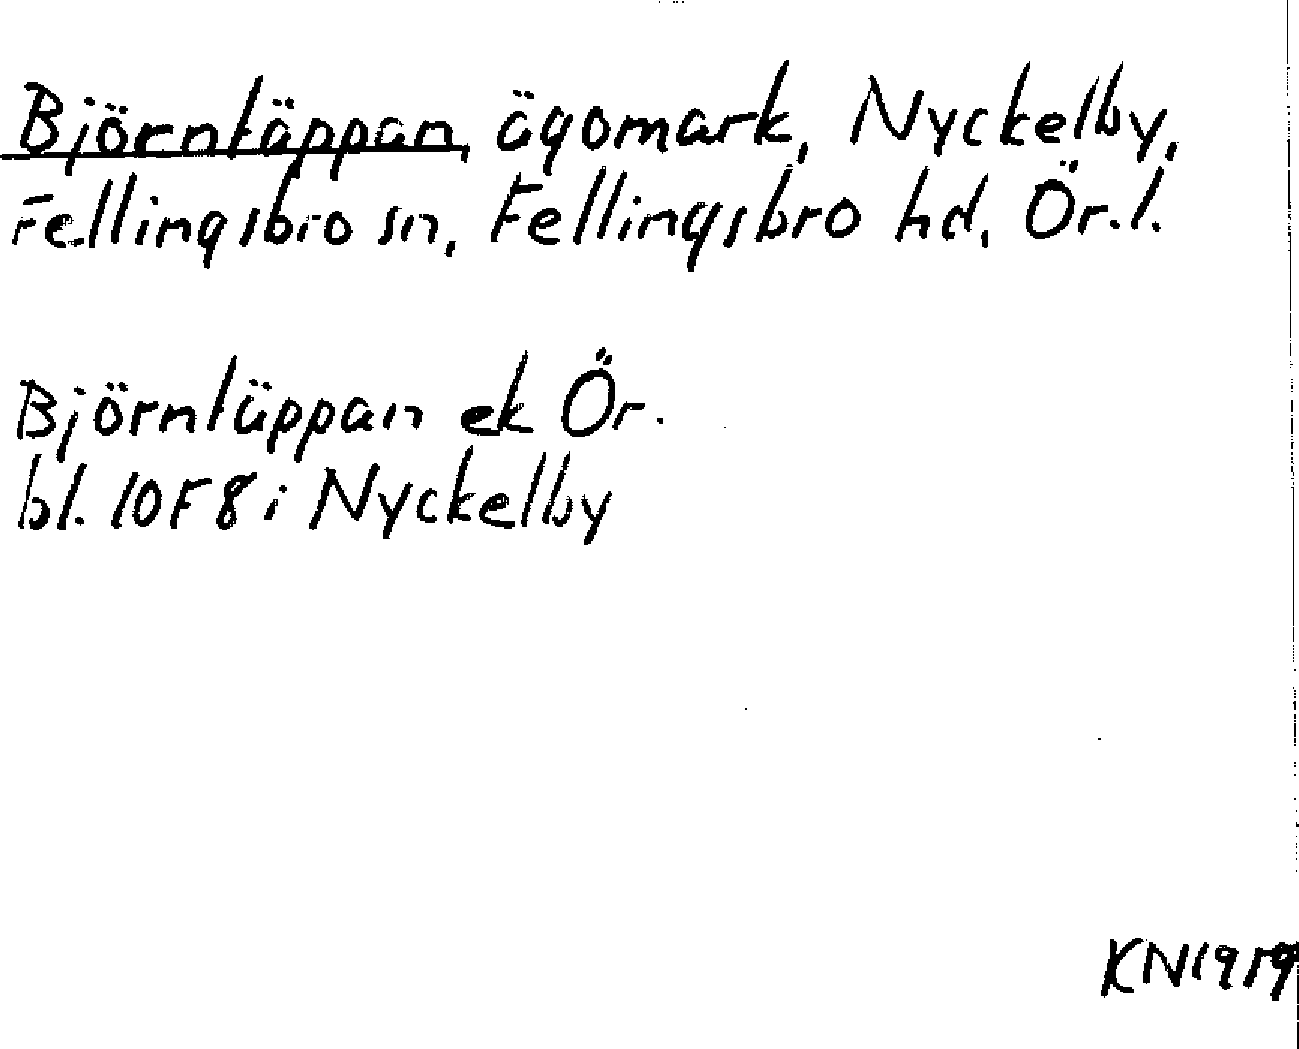 Björntäppan, ägomark, Nyckelby,
Fellingsbro sn, Fellingsbro hd, Ör.l.
Björntäppan ek Ör.
bl. 10F8i Nyckelby
KN1959